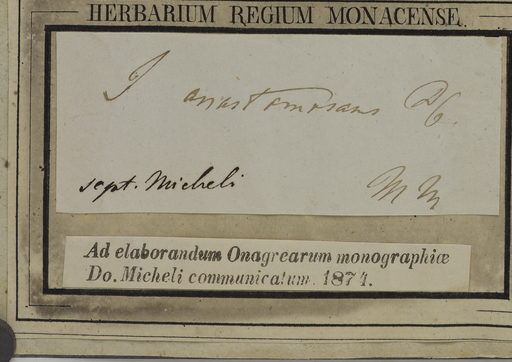 HERBARIUM REGIUM MONACENSE.
J anastomosans DC.
sept. Micheli
M M
Ad elaborandum Onagrearum monographiæ
Do. Micheli communicatum. 1874.